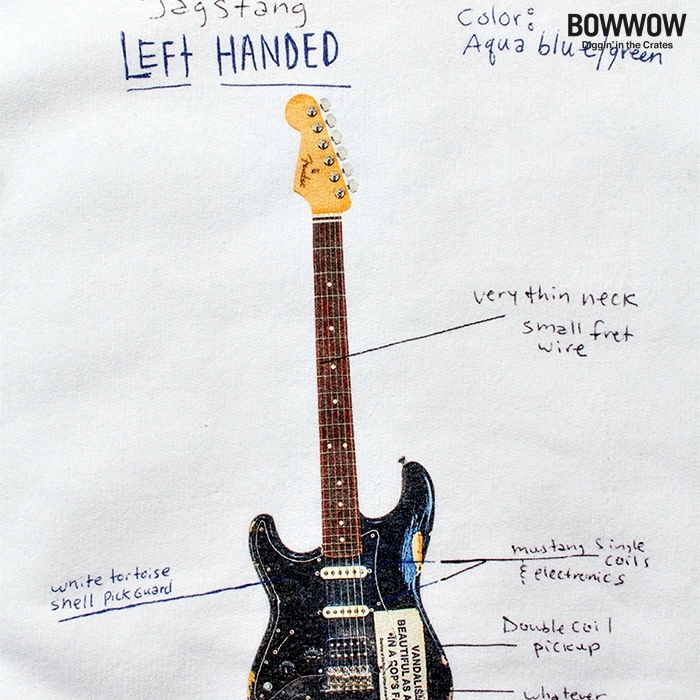 Jagstang
LEFT HANDED
Color:
Aqua blue/green
BOWWOW
Diggin' in the Crates
Fender
very thin neck
small fret
wire
mustang Single
coils
& electronics
white tortoise
shell pick guard
Double coil
pickup
VANDALISM
BEAUTIFUL AS A
IN A COP'S F
whatever